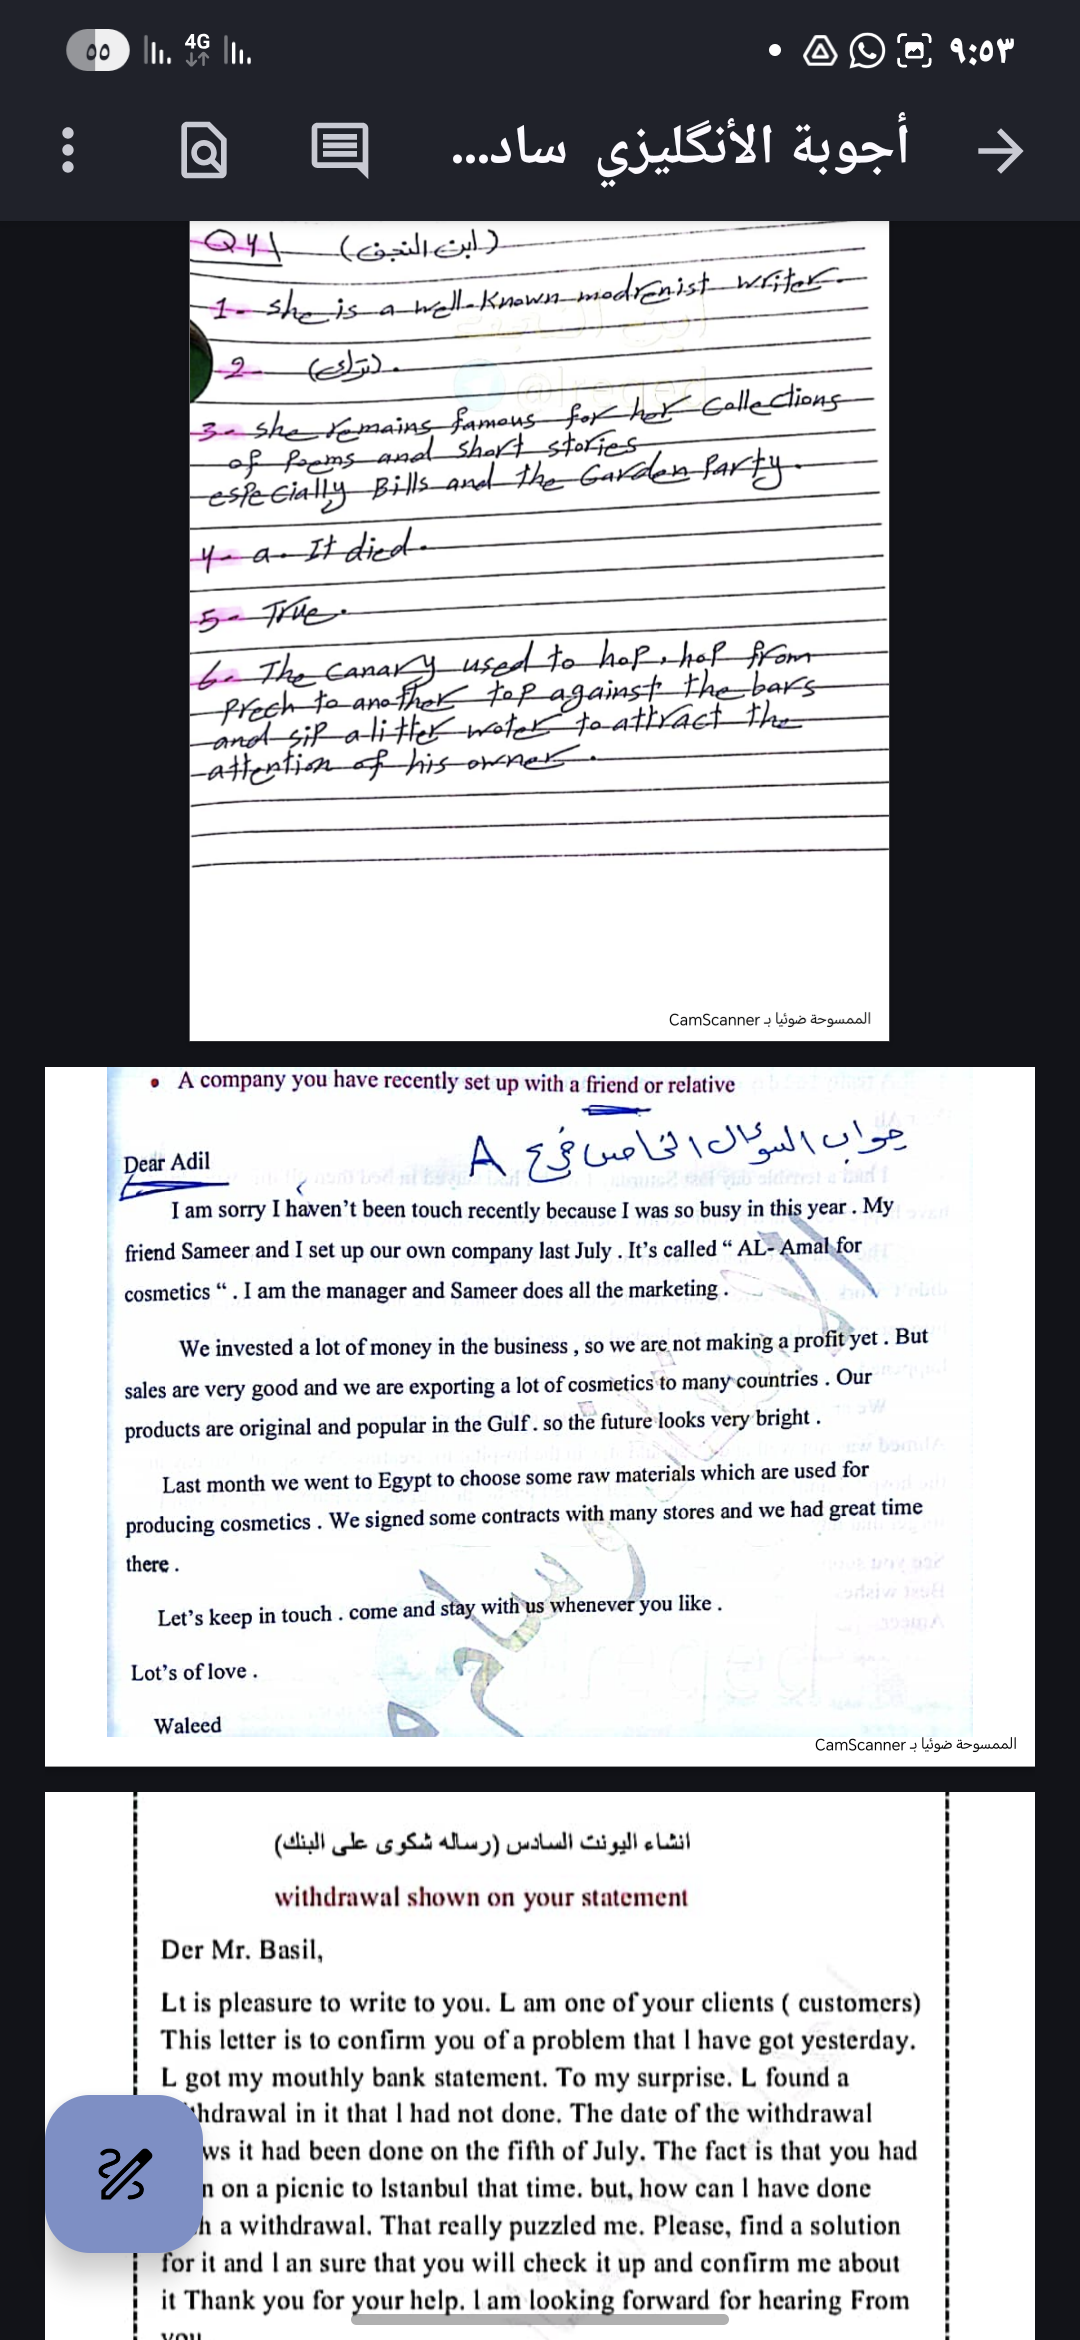 ٥٥ 4G ٩:٥٣
أجوبة الأنگليزي ساد...
Q4\ (ابن النجف)
1- she is a well-known modrenist writer.
2- (ترك).
3- she remains famous for her Collections
of Poems and short stories
especially Bills and the Garden Party.
4- a. It died.
5- True.
6- The Canary used to hop, hop from
prech to another top against the bars
and sip a litter water to attract the
attention of his owner.
الممسوحة ضوئيا بـ CamScanner
• A company you have recently set up with a friend or relative
جواب السؤال الخاص فرع A
Dear Adil
I am sorry I haven't been touch recently because I was so busy in this year . My
friend Sameer and I set up our own company last July . It's called “ AL- Amal for
cosmetics “ . I am the manager and Sameer does all the marketing .
We invested a lot of money in the business , so we are not making a profit yet . But
sales are very good and we are exporting a lot of cosmetics to many countries . Our
products are original and popular in the Gulf . so the future looks very bright .
Last month we went to Egypt to choose some raw materials which are used for
producing cosmetics . We signed some contracts with many stores and we had great time
there .
Let's keep in touch . come and stay with us whenever you like .
Lot's of love .
Waleed
الممسوحة ضوئيا بـ CamScanner
انشاء اليونت السادس (رساله شكوى على البنك)
withdrawal shown on your statement
Der Mr. Basil,
Lt is pleasure to write to you. L am one of your clients ( customers)
This letter is to confirm you of a problem that l have got yesterday.
L got my mouthly bank statement. To my surprise. L found a
hdrawal in it that l had not done. The date of the withdrawal
ws it had been done on the fifth of July. The fact is that you had
n on a picnic to lstanbul that time. but, how can l have done
h a withdrawal. That really puzzled me. Please, find a solution
for it and l an sure that you will check it up and confirm me about
it Thank you for your help. l am looking forward for hearing From
you